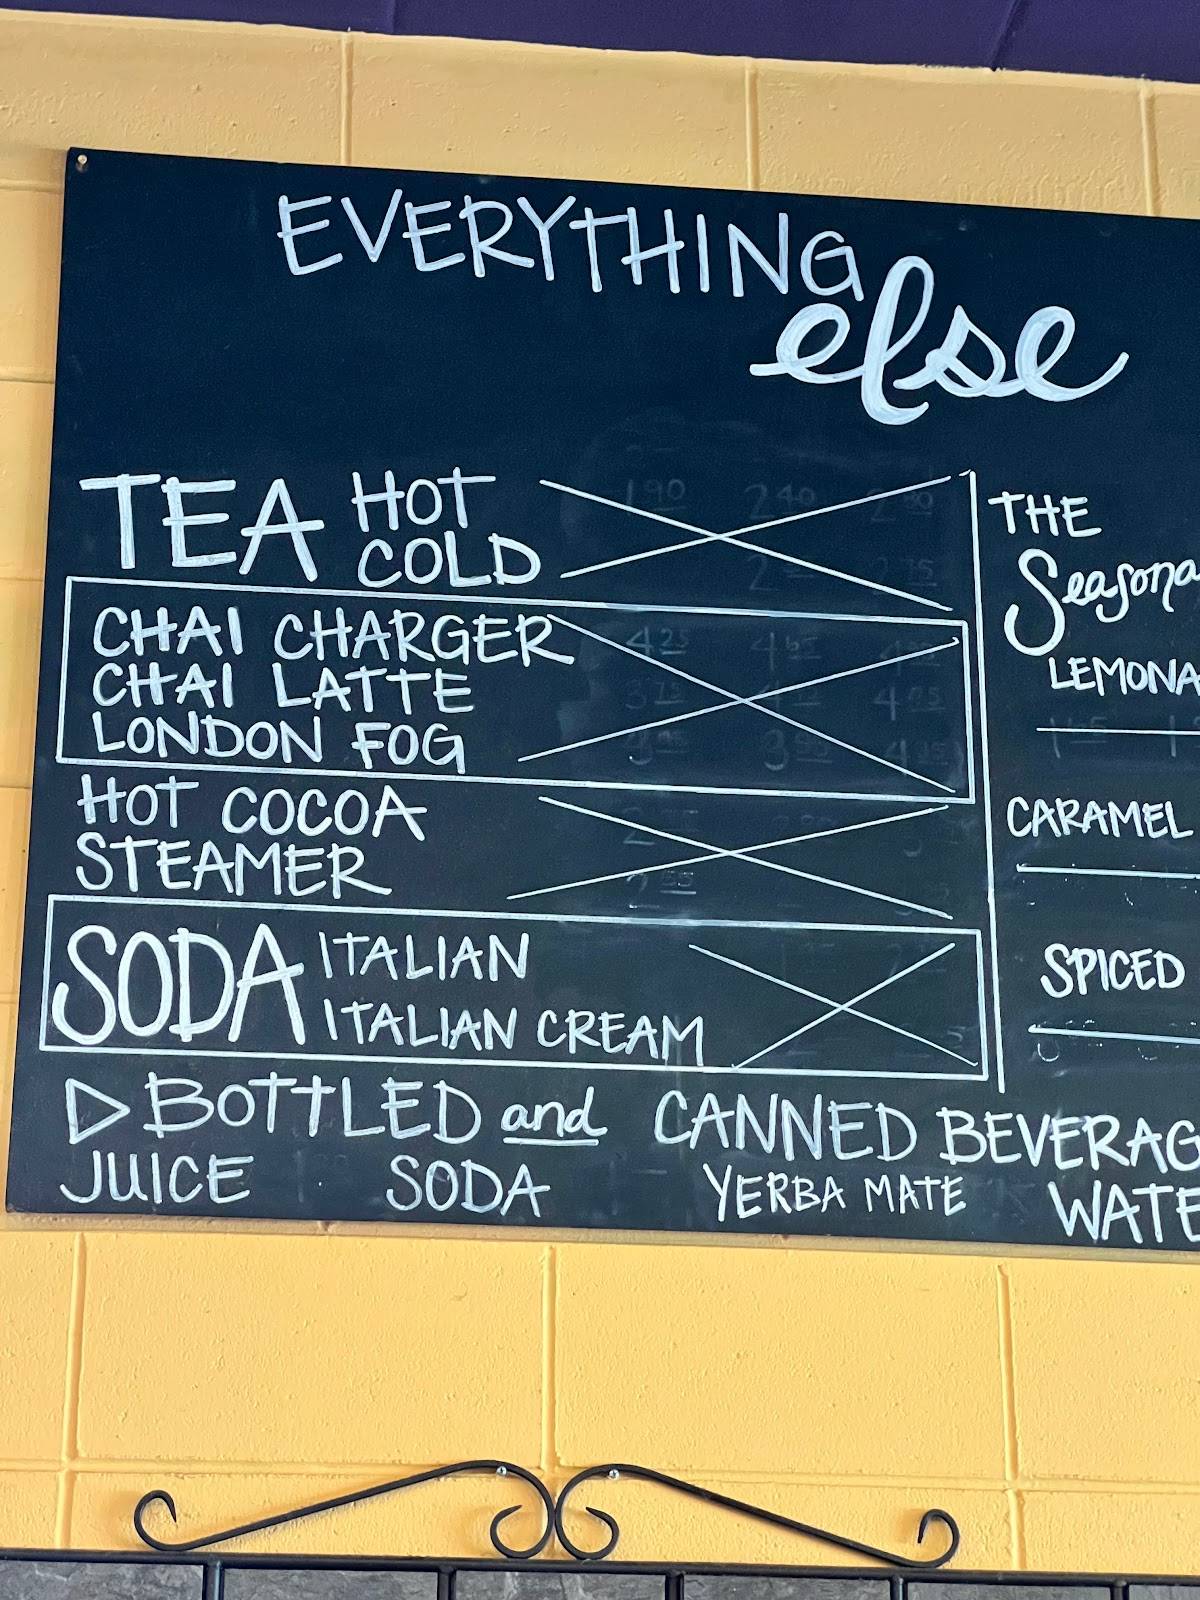 EVERYTHING
else
TEA HOT 190 240
COLD
CHAI CHARGER 425
CHAI LATTE 375
LONDON FOG
HOT COCOA
STEAMER 255
SODA ITALIAN
ITALIAN CREAM
▷ BOTTLED and CANNED BEVERAG
JUICE SODA YERBA MATE WATE
THE
Seasona
LEMONA
CARAMEL
SPICED